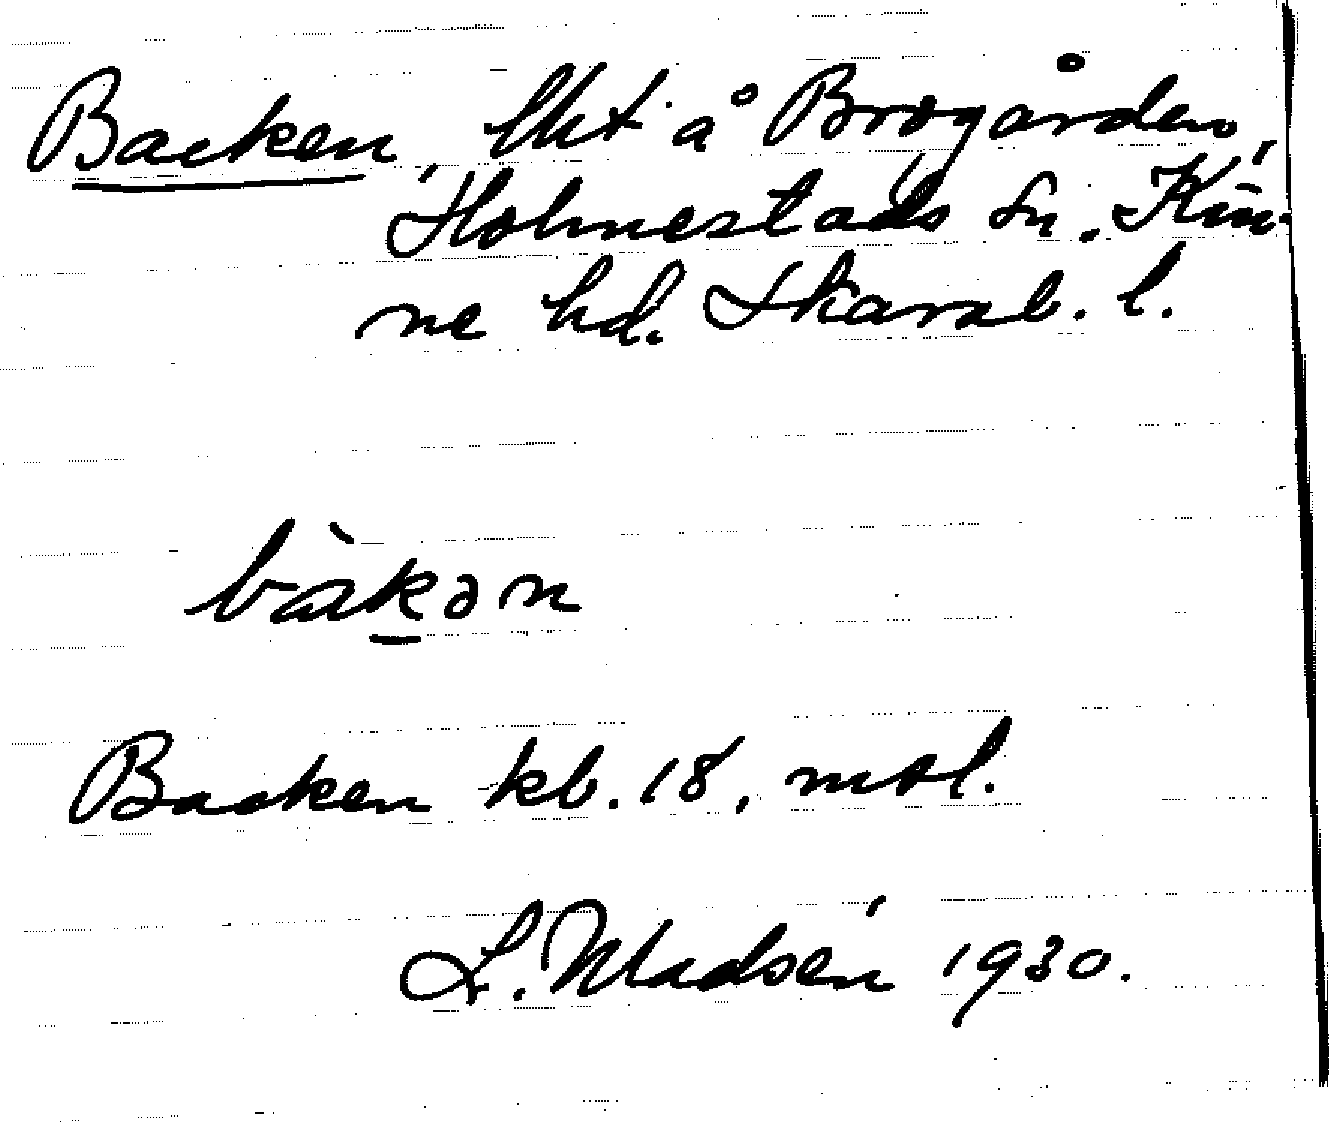 Backen, lht å Brogården,
Holmestads sn. Kin-
ne hd. Skarab. l.
bàkən
Backen kb. 18, mtl.
L. Madsén 1930.